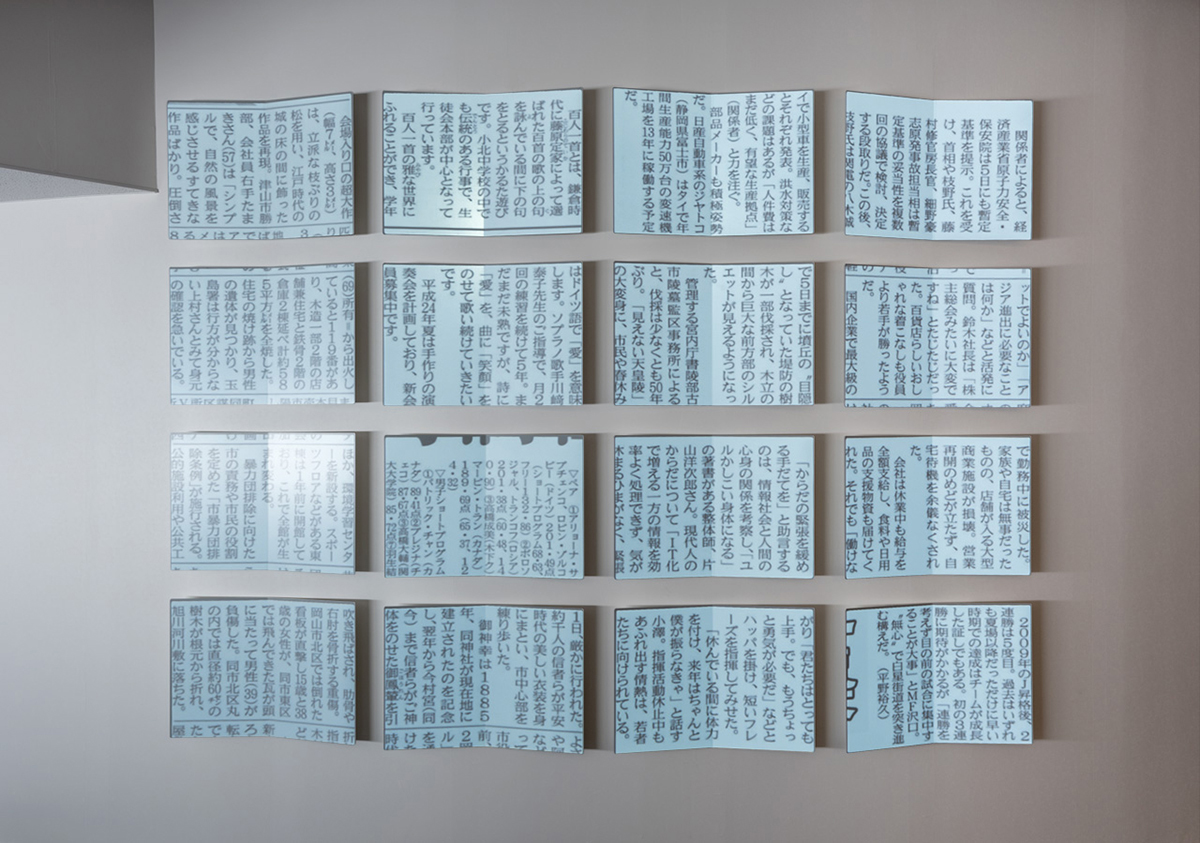 関係者によると、経
済産業省原子力安全・
保安院は5日にも暫定
基準を提示。これを受
け、首相や枝野氏、藤
村修官房長官、細野豪
志原発事故担当相は暫
定基準の妥当性を複数
回の協議で検討、決定
する段取りだ。この後、
枝野氏は関電の八木誠
イで小型車を生産、販売する
とそれぞれ発表。洪水対策な
どの課題はあるが「人件費は
まだ低く、有望な生産拠点」
(関係者)と力を注ぐ。
部品メーカーも積極姿勢
だ。日産自動車系のジヤトコ
(静岡県富士市)はタイで年
間生産能力50万台の変速機
工場を13年に稼働する予定
だ。
百人一首とは、鎌倉時
代に藤原定家によって選
ばれた百首の歌の上の句
を詠んでいる間に下の句
をとるというかるた遊び
です。小北中学校の中で
も伝統のある行事で、生
徒会本部が中心となって
行っています。
百人一首の雅な世界に
ふれることができ、学年
会場入り口の超大作
(幅7㍍、高さ3㍍)
は、立派な枝ぶりの
松を用い、江戸時代の
城の床の間に飾った
作品を再現。津山市勝
部、会社員右手たま
きさん(57)は「シンプ
ルで、自然の風景を
感じさせるすてきな
作品ばかり。圧倒さ
ットでよいのか」「ア
ジア進出に必要なこと
は何か」などと活発に
質問。鈴木社長は「株
主総会みたいに大変で
すね」とたじたじだっ
た。百貨店らしいおし
ゃれな着こなしも役員
より若手が勝ったよう
だ。
国内企業で最大級の
で5日までに墳丘の〝目隠
し〟となっていた堤防の樹
木が一部伐採され、木立の
間から巨大な前方部のシル
エットが見えるようになっ
た。
管理する宮内庁書陵部古
市陵墓監区事務所による
と、伐採は少なくとも50年
ぶり。「見えない天皇陵」
の大変身に、市民や春休み
はドイツ語で「愛」を意味
します。ソプラノ歌手川崎
泰子先生のご指導で、月2
回の練習を続けて5年。ま
だまだ未熟ですが、詩に
「愛」を、曲に「笑顔」を
のせて歌い続けていきたい
です。
平成24年夏は手作りの演
奏会を計画しており、新会
員募集中です。
(69)所有=から出火し
ていると119番があ
り、木造一部2階の店
舗兼住宅と鉄骨2階の
倉庫の棟延べ計約58
5平方㍍を全焼した。
住宅の焼け跡から男性
の遺体が見つかり、玉
島署は行方が分からな
い上村さんとみて身元
の確認を急いでいる。
で勤務中に被災した。
家族や自宅は無事だった
ものの、店舗が入る大型
商業施設が損壊。営業
再開のめどが立たず、自
宅待機を余儀なくされ
た。
会社は休業中も給与を
全額支給し、食料や日用
品の支援物資も届けてく
れた。それでも「働けな
「からだの緊張を緩め
る手だてを」と助言する
のは、情報社会と人間の
心身の関係を考察し、「ユ
ルかしこい身体になる」
の著書がある整体師、片
山洋次郎さん。現代人の
からだについて「IT化
で増える一方の情報を効
率よく処理できず、気が
休まるひまがなく、緊張
▽ペア ①アリョーナ・サ
フチェンコ、ロビン・ゾルコ
ビー(ドイツ)201・49点
(ショートプログラム68・63、
フリー132・86)
▽男子ショートプログラム
①パトリック・チャン(カ
ナダ)89・41点
ほか、環境学習センタ
ーを新設する。スポー
ツフロアなどがある東
棟は1年前に開館して
おり、これで全館が生
まれ変わる。
暴力団排除に向けた
市の責務や市民の役割
を定めた「市暴力団排
除条例」が施行される。
公的施設利用や公共工
2009年のJ1昇格後、2
連勝は5度目。過去はいずれ
も夏場以降だっただけに早い
時期での達成はチームが成長
した証しでもある。初の3連
勝に期待がかかるが「連勝を
考えず目の前の試合に集中す
ることが大事」とMF沢口。
〝無心〟で白星街道を突き進
む構えだ。(平野裕久)
がり「君たちはとっても
上手。でも、もうちょっ
と勇気が必要だ」などと
ハッパを掛け、短いフレ
ーズを指揮してみせた。
「休んでいる間に体力
を付け、来年はちゃんと
僕が振らなきゃ」と話す
小澤。指揮活動休止中も
あふれ出す情熱は、若者
たちに向けられている。
1日、厳かに行われた。
約千人の信者らが平安
時代の美しい衣装を身
にまとい、市中心部を
練り歩いた。
御神幸は1885
年、同神社が現在地に
建立されたのを記念
し、翌年から今村宮(同
今)まで信者らがご神
体をのせた御鳳輦を引
吹き飛ばされ、肋骨や
右肘を骨折する重傷。
岡山市北区では倒れた
看板が直撃し15歳と38
歳の女性が、同市東区
では飛んできた瓦が頭
に当たって男性(39)が
負傷した。同市北区丸
の内では直径約60㌢の
樹木が根元から折れ、
旭川河川敷に落ちた。